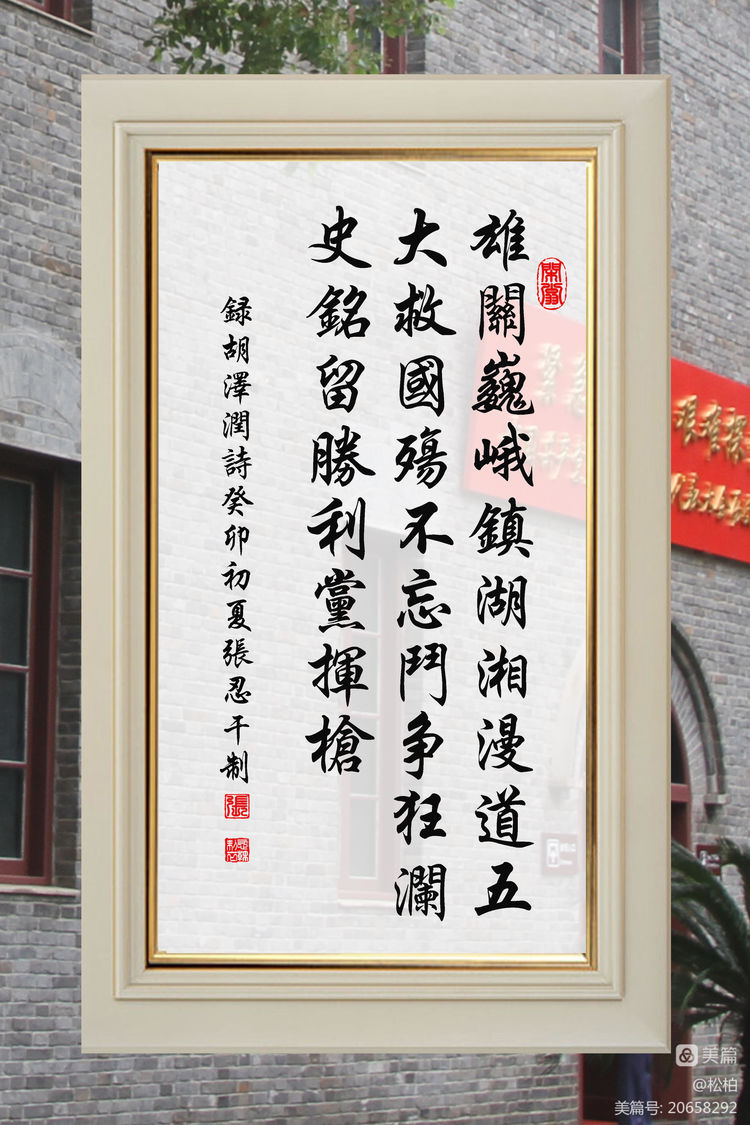 雄關巍峨鎮湖湘漫道五
大救國殤不忘鬥争狂瀾
史銘留勝利黨揮槍
録胡澤潤詩癸卯初夏張忍干制
張
美篇
@松柏
美篇号: 20658292